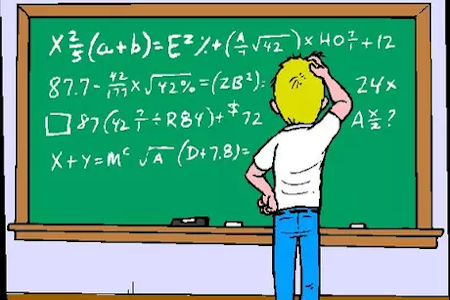 X 2/5 (a+b)=E² %+(A/1 √42)x HO 7/1+12
87.7-42/177 x √42%=(2B²)= 24x
□ 87(42 7/1 ÷R84)+$72 A x/2?
X+Y=Mᶜ √A (D+7.8)=